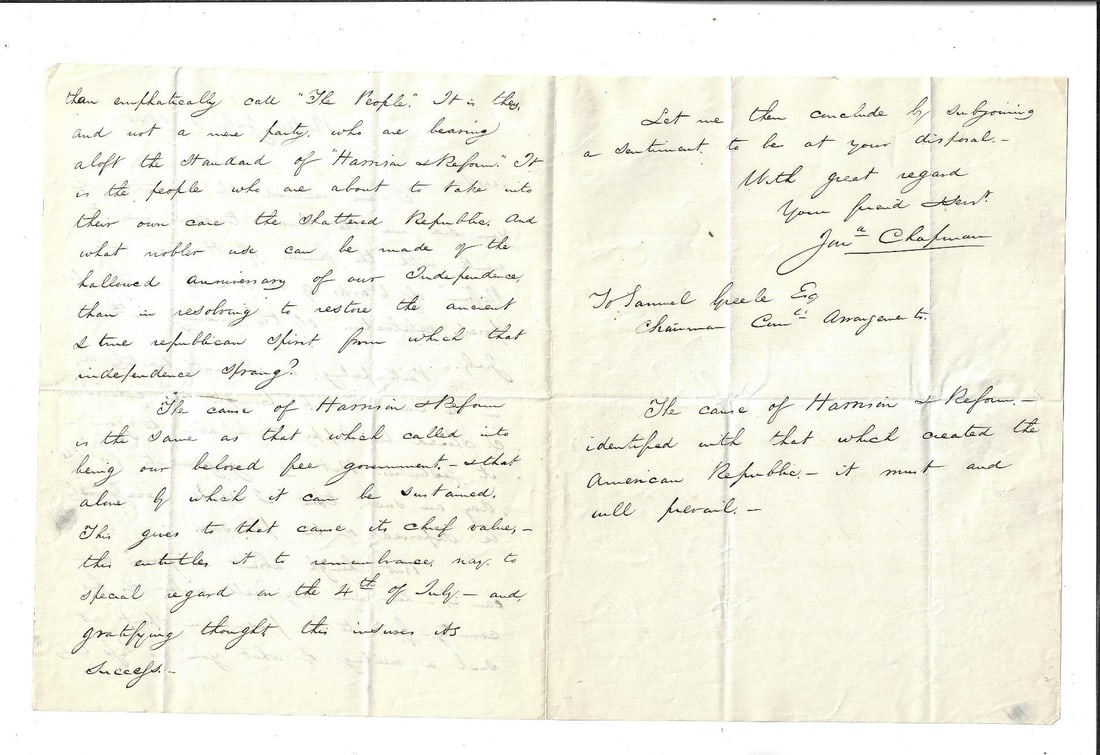 than emphatically call "The People". It is they,
and not a mere party, who are bearing
aloft the standard of "Harrison & Reform." It
is the people who are about to take into
their own care the shattered Republic. And
what nobler use can be made of the
hallowed anniversary of our Independence,
than in resolving to restore the ancient
& true republican spirit from which that
independence sprang?
The cause of Harrison & Reform
is the same as that which called into
being our beloved free government. – & that
alone by which it can be sustained.
This gives to that cause its chief value, –
this entitles it to remembrance, nay. to
special regard on the 4th of July – and,
gratifying thought, this insures its
success. –
Let me then conclude by subjoining
a sentiment to be at your disposal. –
With great regard
Your friend & Servt.
Jona Chapman
To Samuel Greele Esq
Chairman Comtt. Arrangements.
The cause of Harrison & Reform. –
identified with that which created the
American Republic – it must and
will prevail. –